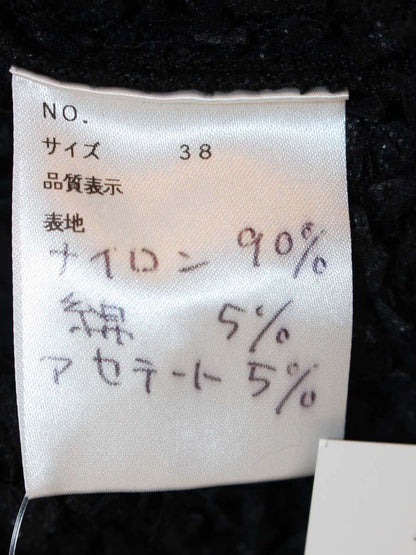 NO.
サイズ 38
品質表示
表地
ナイロン 90%
綿 5%
アセテート 5%